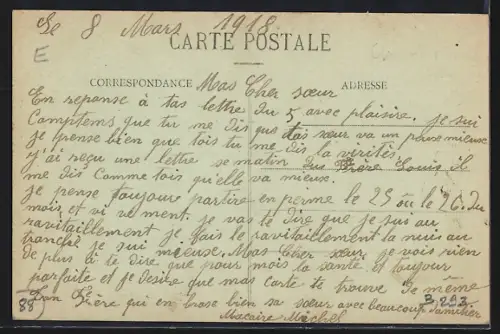 Le 8 Mars 1918
E
CARTE POSTALE
CORRESPONDANCE Mas Cher sœur ADRESSE
En reponse à tas lettre du 5 avec plaisire. je sui
Comptems que tu me dis que tas sœur va un peux mieuse
je pense bien que tois tu me dis la vérités
j'ai reçu une lettre se matin du frère Louis il
me dis Comme tois qu'elle va mieux.
je pense toujoure partire en perme le 25 ou le 26. du
mois et vi vement. je vas te dire que je sui au
ravitaillement je fais le ravitaillement la nuis au
tranché je sui mieuse. Mas Cher sœur je vois rien
de plus à te dire que pour mois la santé et toujour
parfaite et je desire que mas carte te trouve de même
Ton frère qui en brase bien sa sœur avec beaucoup d'amitier
88
Macaire Michel
B.293